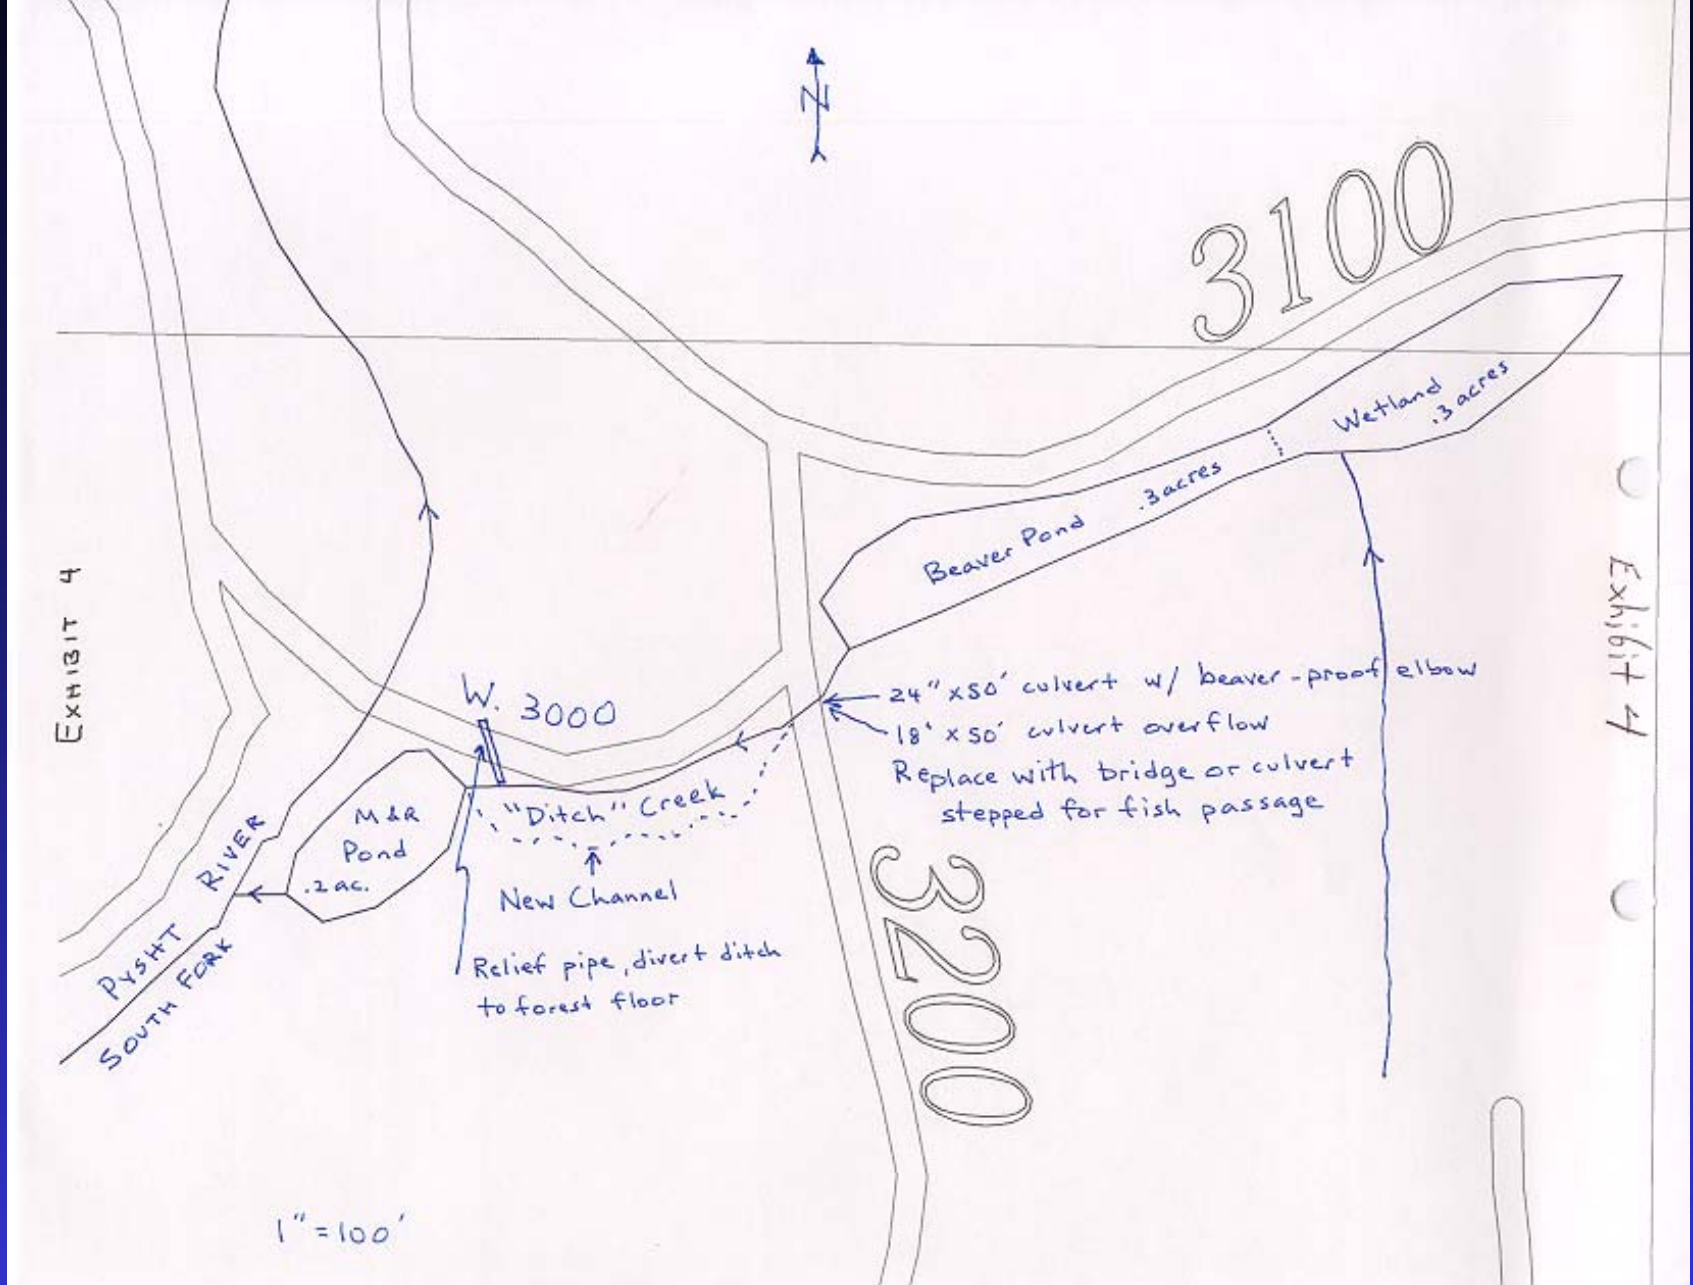 N
3100
Wetland
.3 acres
Beaver Pond .3 acres
EXHIBIT 4
Exhibit 4
24" x 50' culvert w/ beaver-proof elbow
18' x 50' culvert overflow
Replace with bridge or culvert
stepped for fish passage
W. 3000
"Ditch" Creek
M&R
Pond
.2 ac.
New Channel
PYSHT RIVER
SOUTH FORK
Relief pipe, divert ditch
to forest floor
3200
1" = 100'